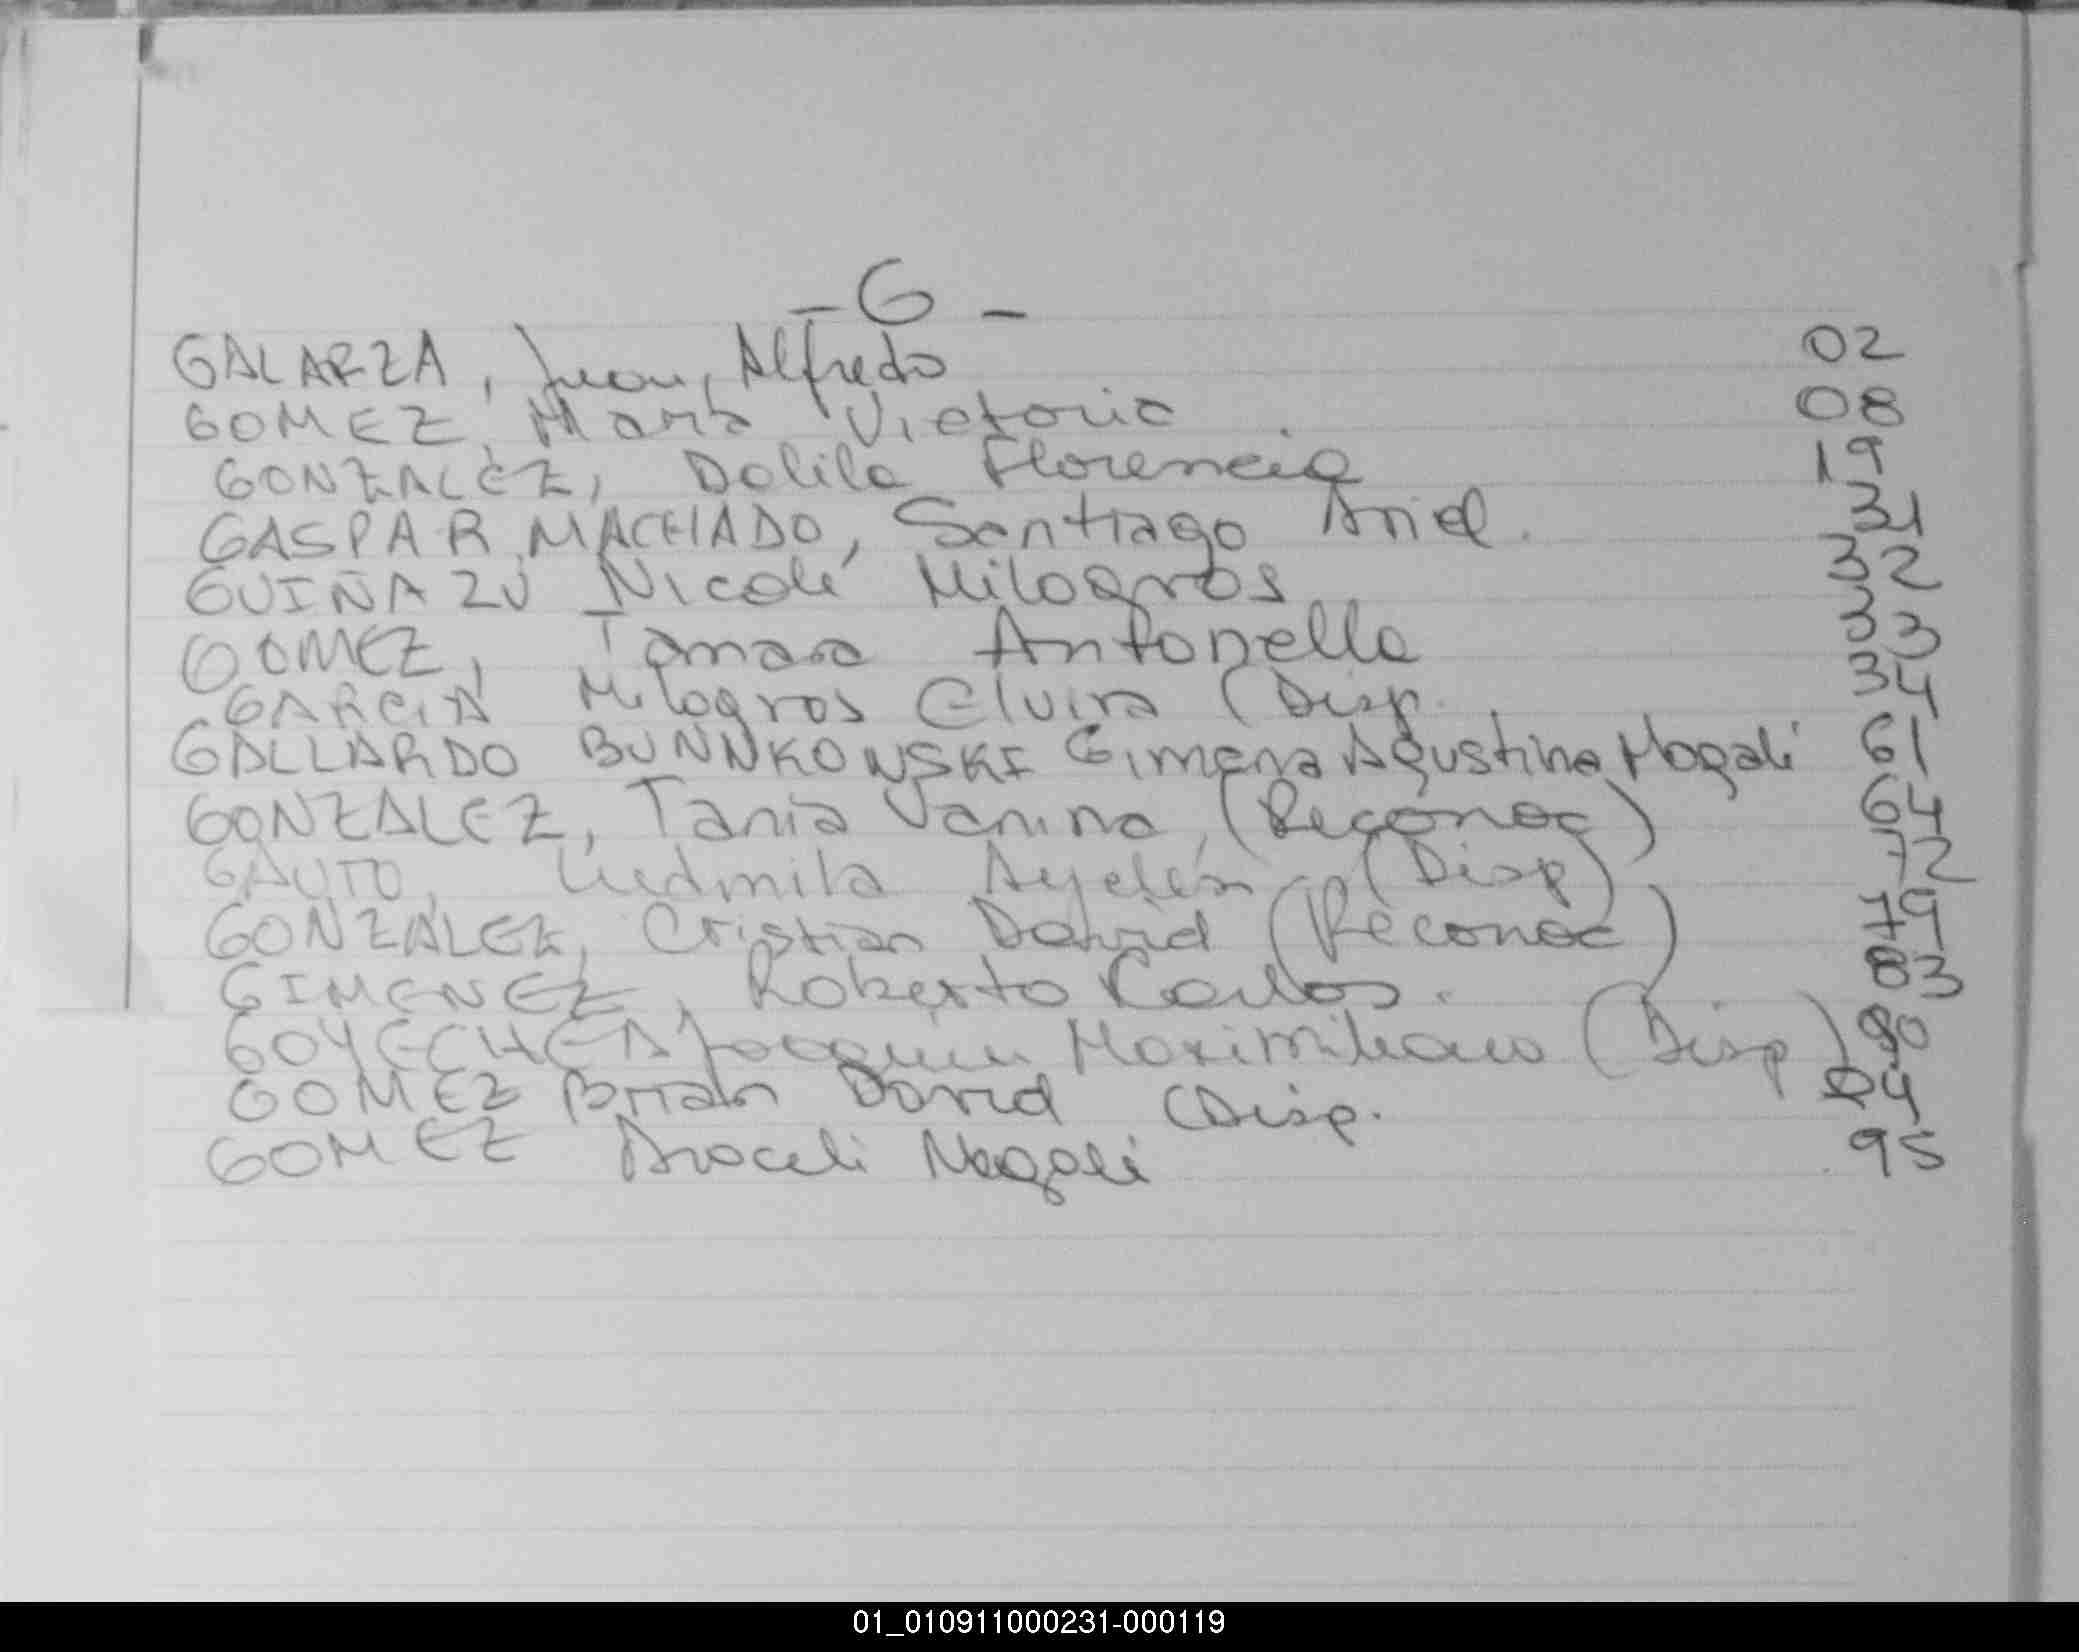 - G -
GALARZA, Juan, Alfredo 02
GOMEZ, María Victoria 08
GONZALEZ, Dalila Florencia 19
GASPAR MACHADO, Santiago Ariel. 31
GUIÑAZÚ Nicole Milagros 32
GOMEZ, Tamara Antonella 33
GARCIA Milagros Elvira (Disp. 34
GALLARDO BUNNKOWSKI Gimena Agustina Magali 61
GONZALEZ, Tania Vanina (Reconoc) 64
GAUTO, Ludmila Ayelén (Disp) 72
GONZALEZ, Cristian David (Reconoc) 79
GIMENEZ, Roberto Carlos. 83
GOYECHEA Joaquin Maximiliano (Disp) 90
GOMEZ Brian David (Disp.
GOMEZ Araceli Magali 95
01_010911000231-000119